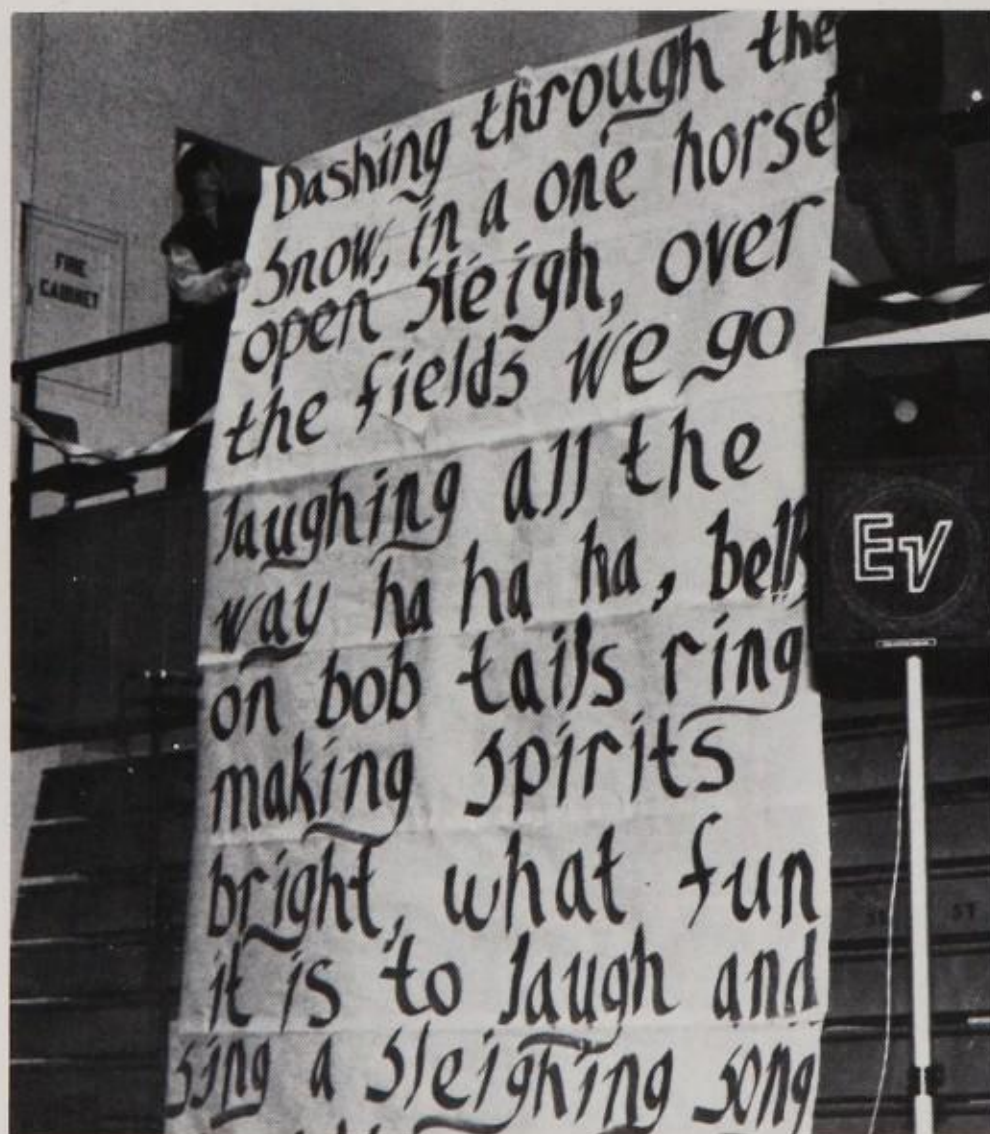 Dashing through the
Snow, in a one horse
open sleigh, over
the fields we go
laughing all the
way ha ha ha, bells
on bob tails ring
making spirits
bright, what fun
it is to laugh and
sing a sleighing song
FIRE
CABINET
EV